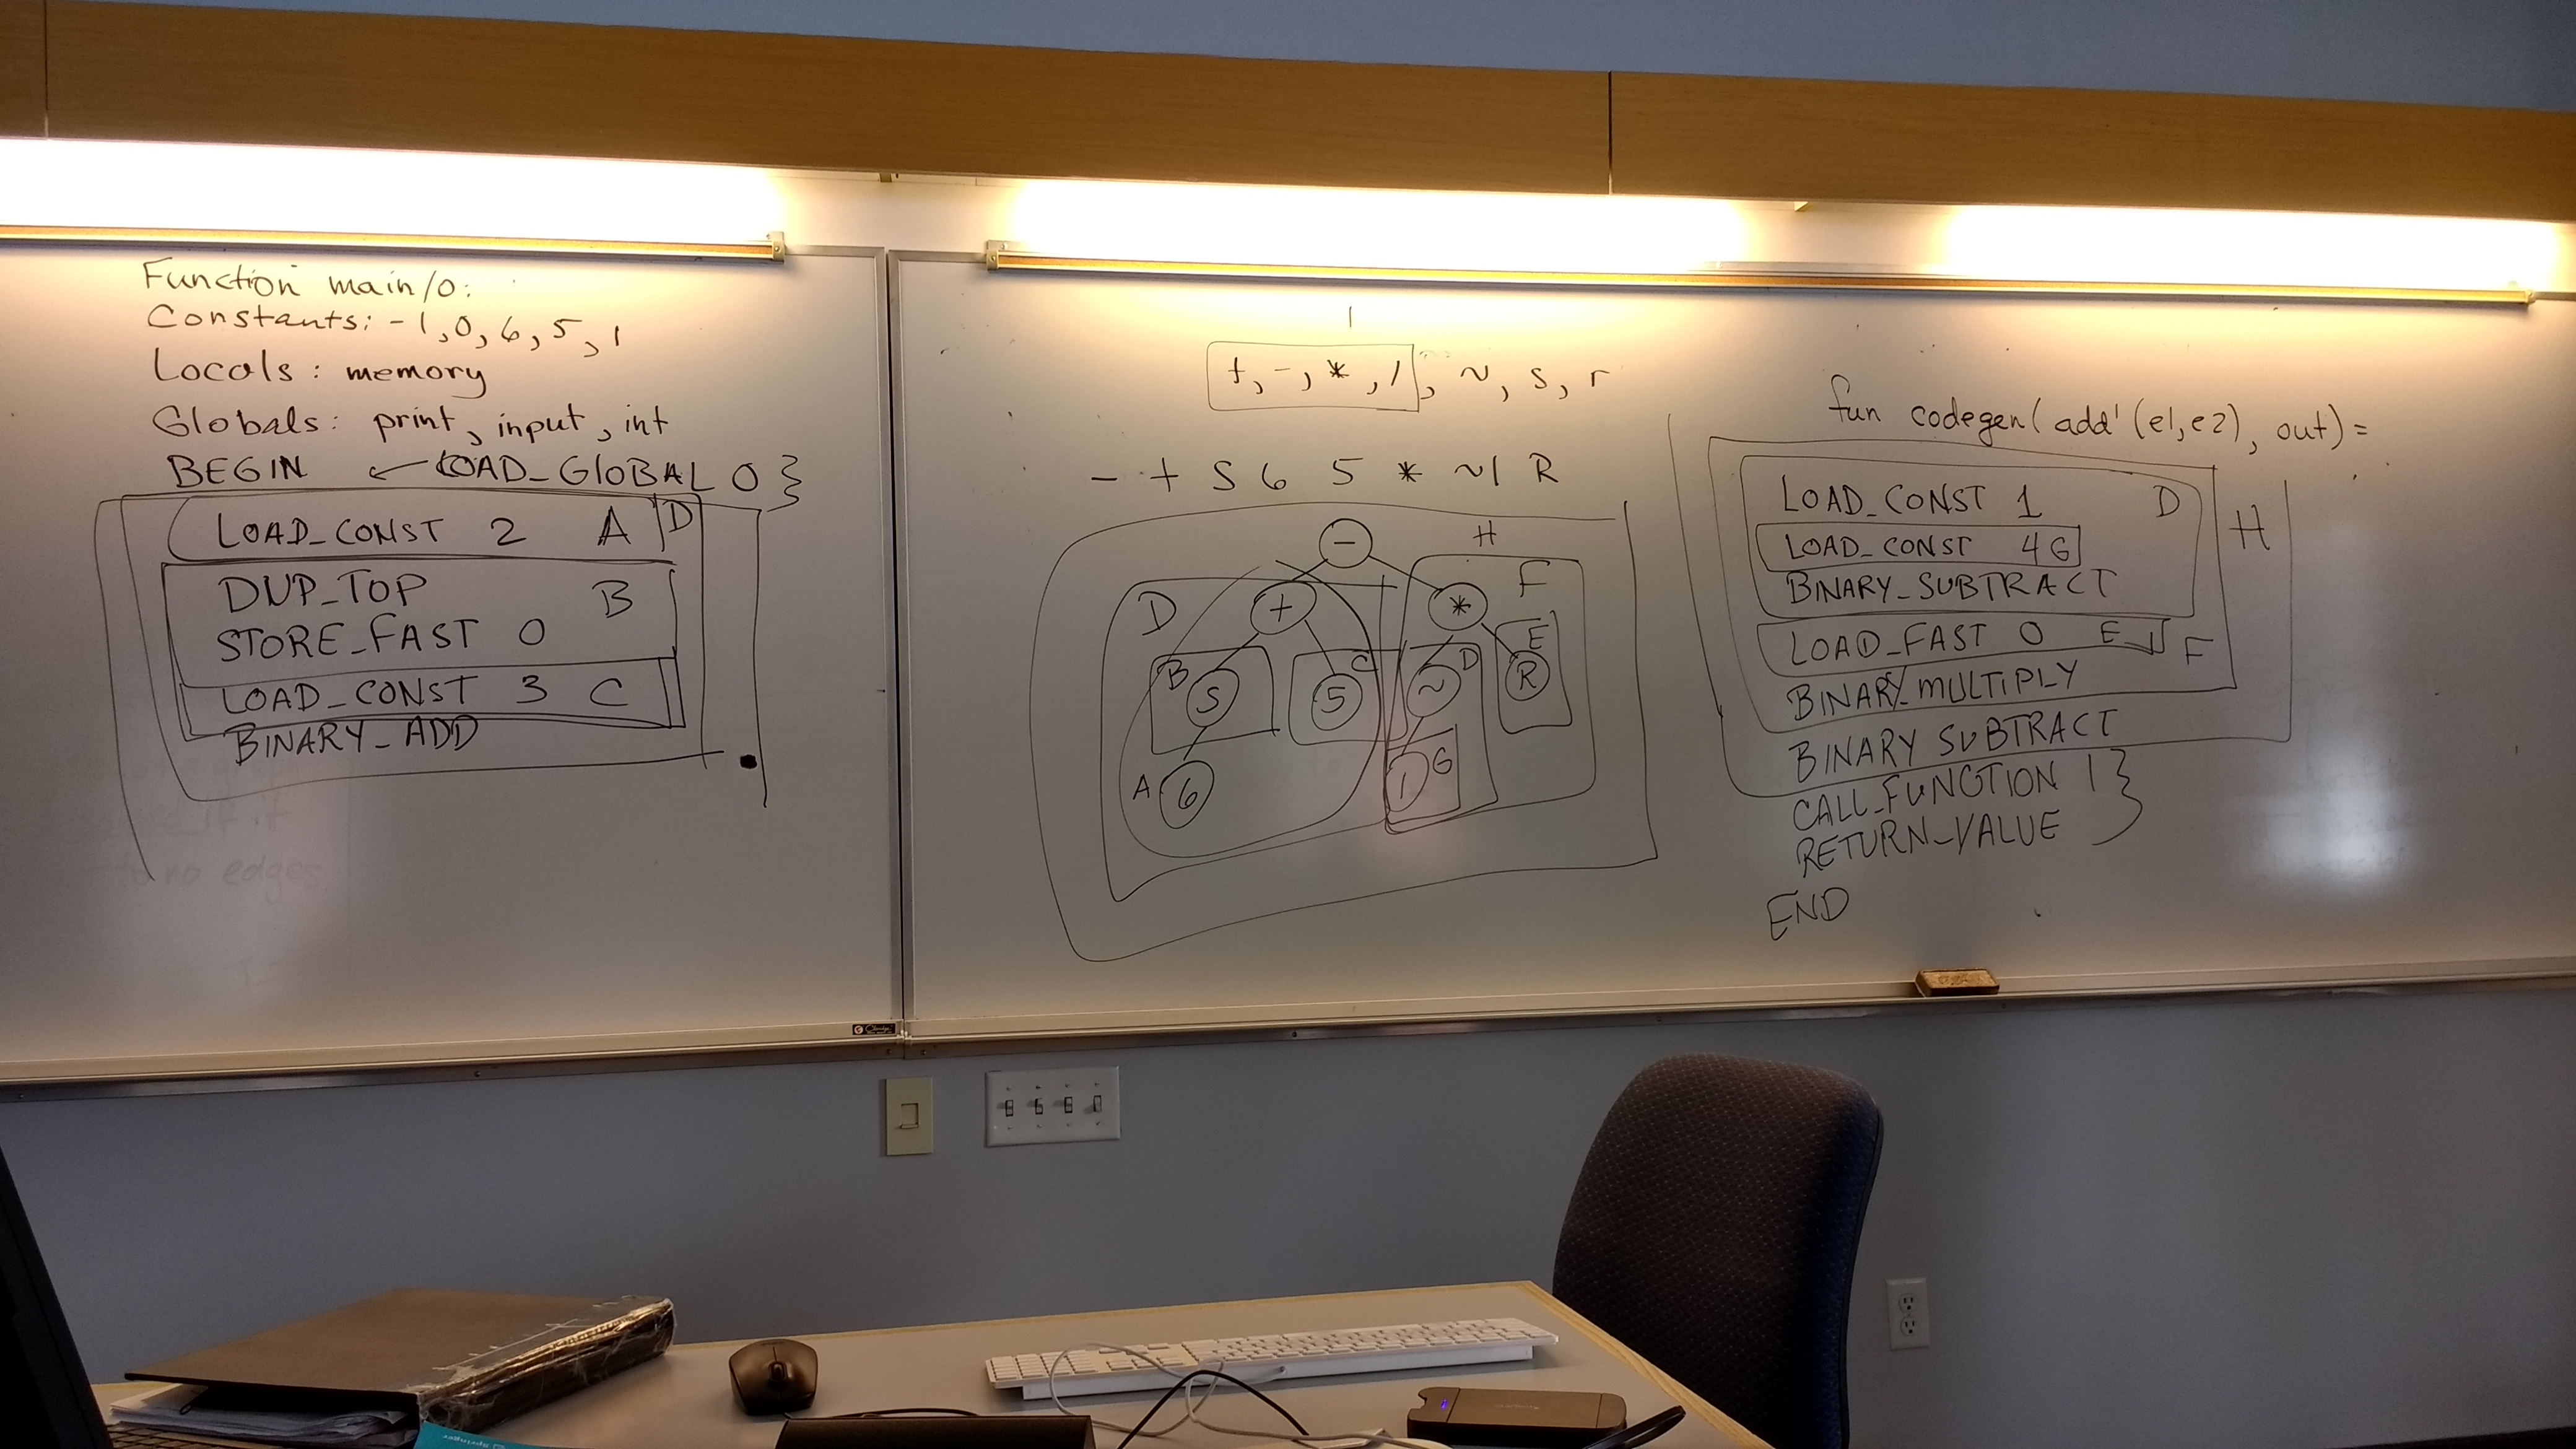 Function main/0:
Constants: -1, 0, 6, 5, 1
Locals: memory
Globals: print, input, int
BEGIN ← LOAD_GLOBAL 0 }
LOAD_CONST 2 A D
DUP_TOP
B
STORE_FAST 0
LOAD_CONST 3 C
BINARY_ADD
to no edges
+, -, *, /, ~, s, r
- + S 6 5 * ~ 1 R
-
H
D + * F
B S C 5 ~ D E R
A 6 1 G
fun codegen( add'(e1,e2), out) =
LOAD_CONST 1 D
LOAD_CONST 4 G H
BINARY_SUBTRACT
LOAD_FAST 0 E F
BINARY_MULTIPLY
BINARY SUBTRACT
CALL_FUNCTION 1 }
RETURN_VALUE
END
Springer